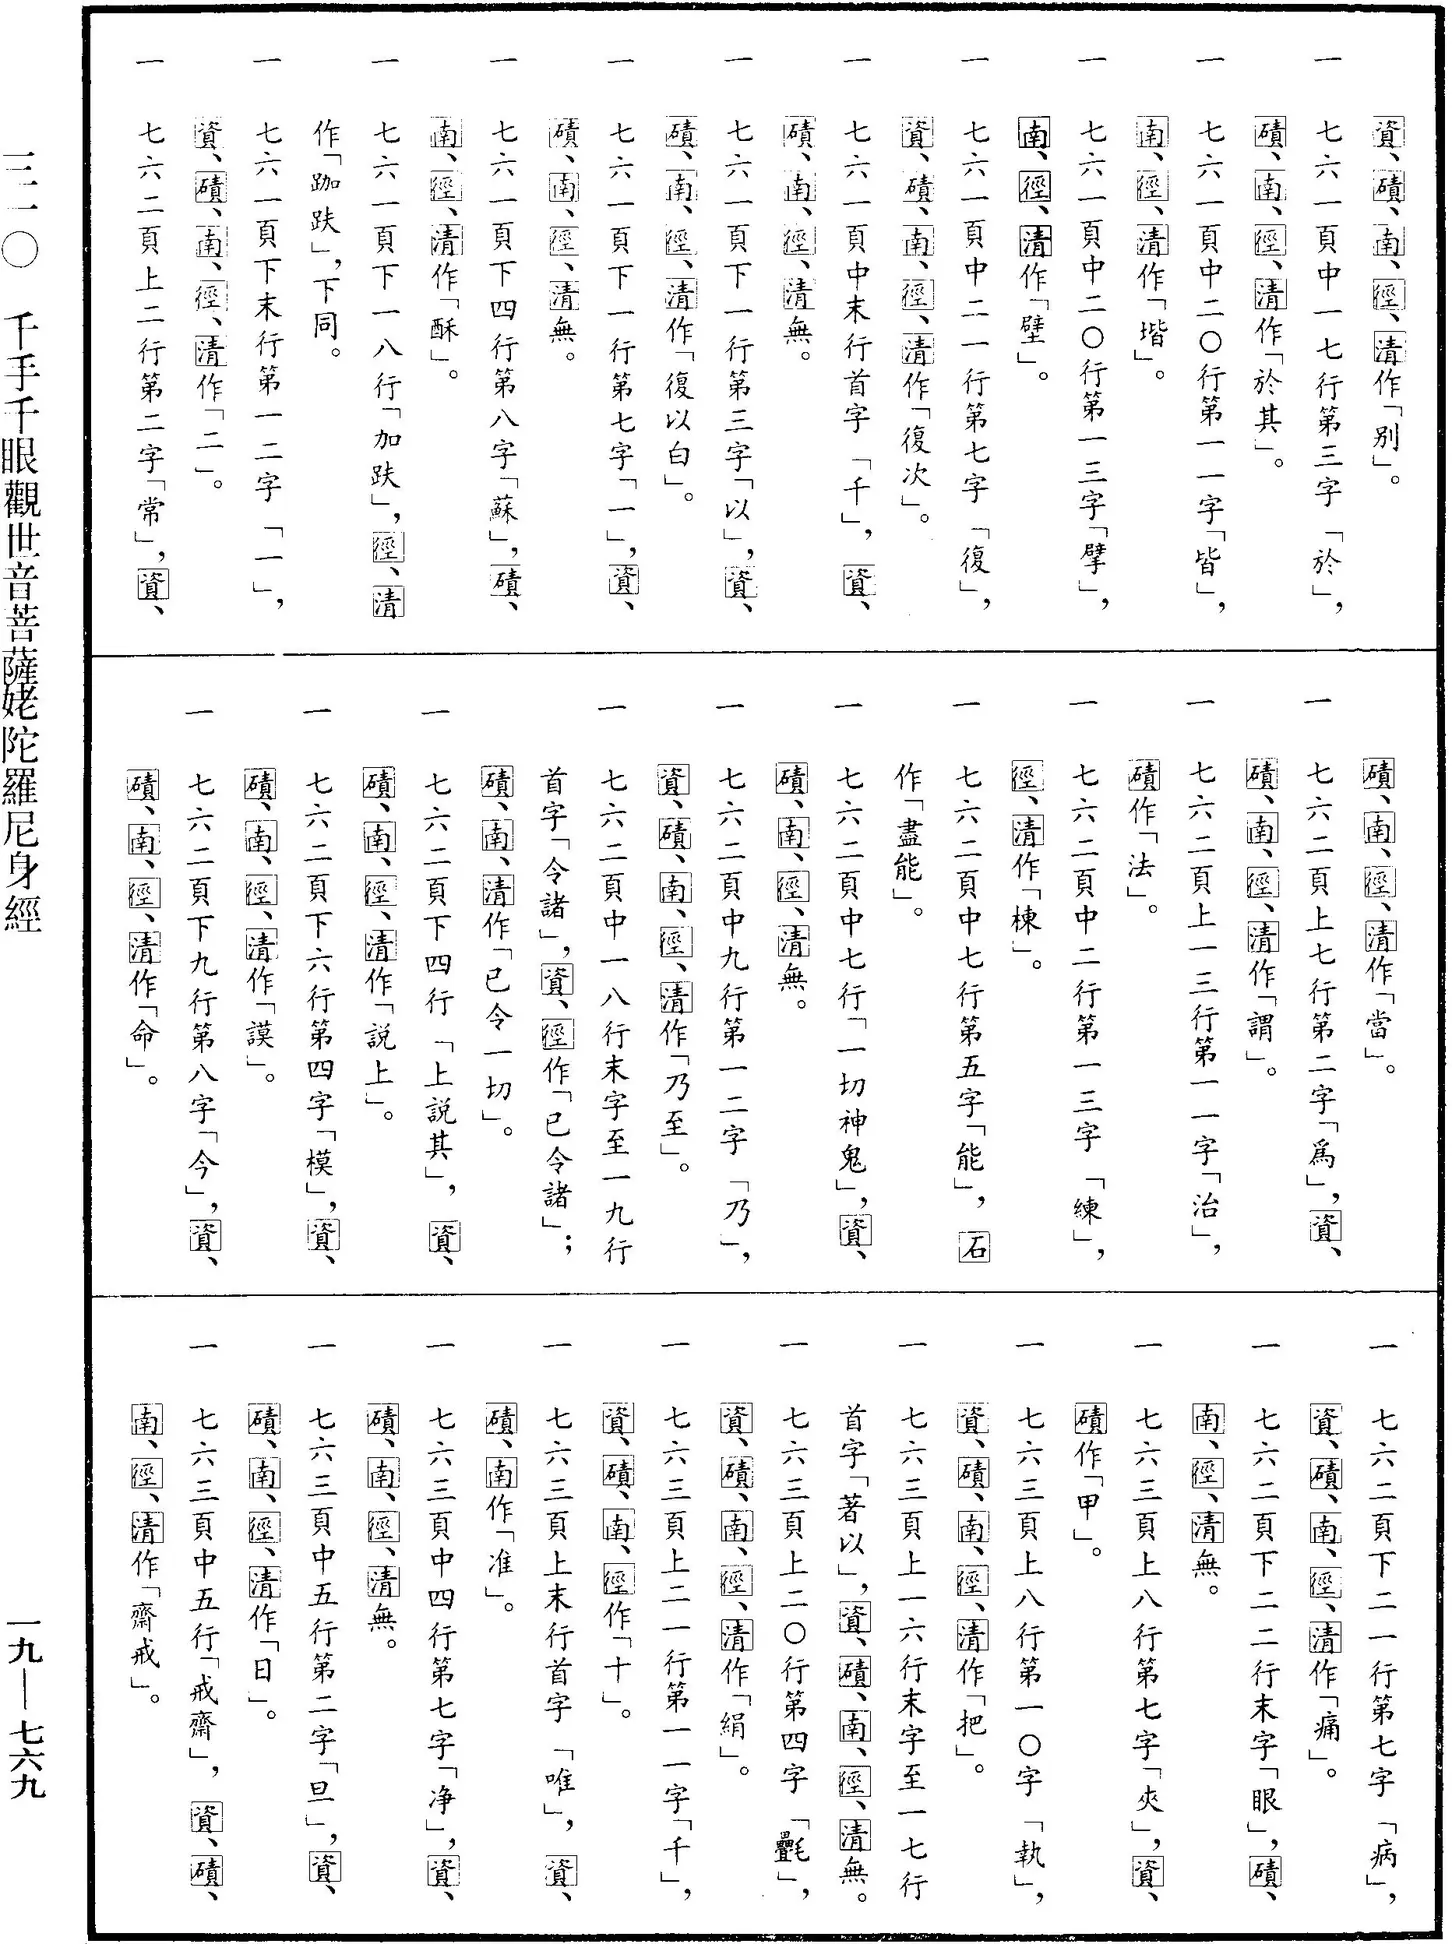 資、磧、南、徑、清作「別」。
一　七六一頁中一七行第三字「於」，
磧、南、徑、清作「於其」。
一　七六一頁中二〇行第一一字「皆」，
南、徑、清作「堦」。
一　七六一頁中二〇行第一三字「擘」，
南、徑、清作「壁」。
一　七六一頁中二一行第七字「復」，
資、磧、南、徑、清作「復次」。
一　七六一頁中末行首字「千」，資、
磧、南、徑、清無。
一　七六一頁下一行第三字「以」，資、
磧、南、徑、清作「復以白」。
一　七六一頁下一行第七字「一」，資、
磧、南、徑、清無。
一　七六一頁下四行第八字「蘇」，磧、
南、徑、清作「酥」。
一　七六一頁下一八行「加趺」，徑、清
作「跏趺」，下同。
一　七六一頁下末行第一二字「一」，
資、磧、南、徑、清作「二」。
一　七六二頁上二行第二字「常」，資、
磧、南、徑、清作「當」。
一　七六二頁上七行第二字「爲」，資、
磧、南、徑、清作「謂」。
一　七六二頁上一三行第一一字「治」，
磧作「法」。
一　七六二頁中二行第一三字「練」，
徑、清作「楝」。
一　七六二頁中七行第五字「能」，石
作「盡能」。
一　七六二頁中七行「一切神鬼」，資、
磧、南、徑、清無。
一　七六二頁中九行第一二字「乃」，
資、磧、南、徑、清作「乃至」。
一　七六二頁中一八行末字至一九行
首字「令諸」，資、徑作「已令諸」；
磧、南、清作「已令一切」。
一　七六二頁下四行「上説其」，資、
磧、南、徑、清作「説上」。
一　七六二頁下六行第四字「模」，資、
磧、南、徑、清作「謨」。
一　七六二頁下九行第八字「今」，資、
磧、南、徑、清作「命」。
一　七六二頁下二一行第七字「病」，
資、磧、南、徑、清作「痛」。
一　七六二頁下二二行末字「眼」，磧、
南、徑、清無。
一　七六三頁上八行第七字「夾」，資、
磧作「甲」。
一　七六三頁上八行第一〇字「執」，
資、磧、南、徑、清作「把」。
一　七六三頁上一六行末字至一七行
首字「著以」，資、磧、南、徑、清無。
一　七六三頁上二〇行第四字「氎」，
資、磧、南、徑、清作「絹」。
一　七六三頁上二一行第一一字「千」，
資、磧、南、徑作「十」。
一　七六三頁上末行首字「唯」，資、
磧、南作「准」。
一　七六三頁中四行第七字「净」，資、
磧、南、徑、清無。
一　七六三頁中五行第二字「旦」，資、
磧、南、徑、清作「日」。
一　七六三頁中五行「戒齋」，資、磧、
南、徑、清作「齋戒」。
三一〇　千手千眼觀世音菩薩姥陀羅尼身經
一九—七六九